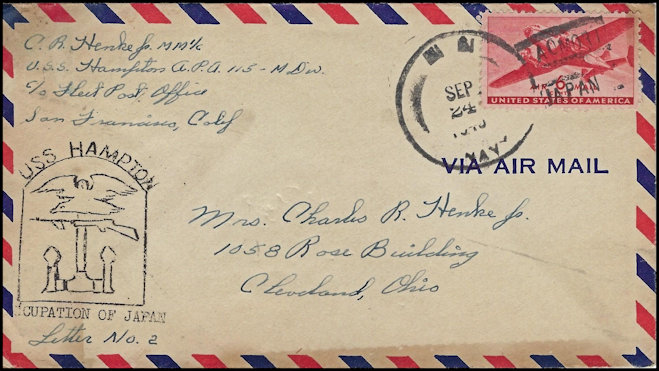 C. R. Henke Jr. MM 1/c
U.S.S. Hampton A.P.A. 115 - M Div.
c/o Fleet Post Office
San Francisco, Calif
SEP
24
NAVY
JAPAN
UNITED STATES OF AMERICA
VIA AIR MAIL
USS HAMPTON
CUPATION OF JAPAN
Letter No. 2
Mrs. Charles R. Henke Jr.
1058 Rose Building
Cleveland, Ohio